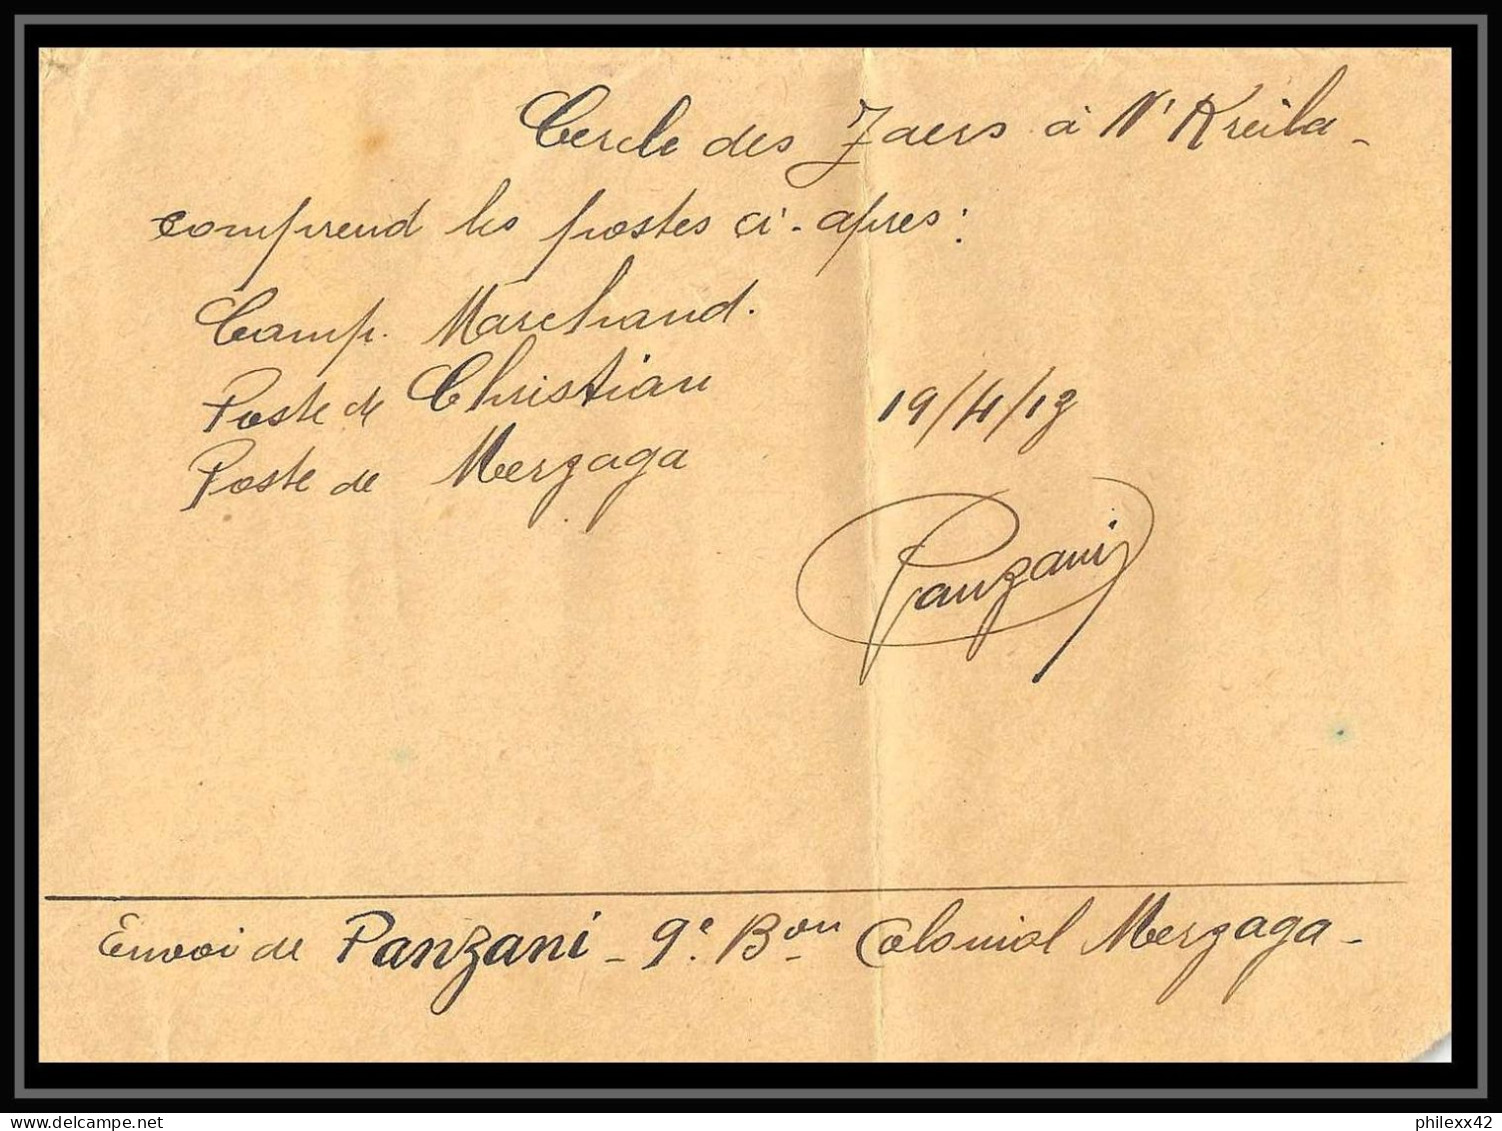 Cercle des Zaers à N'Kreila -
comprend les postes ci-apres:
Camp. Marchand.
Poste de Christian
Poste de Merzaga
19/4/13
Panzani
Envoi de Panzani - 9e Bon Colonial Merzaga -
philexx42